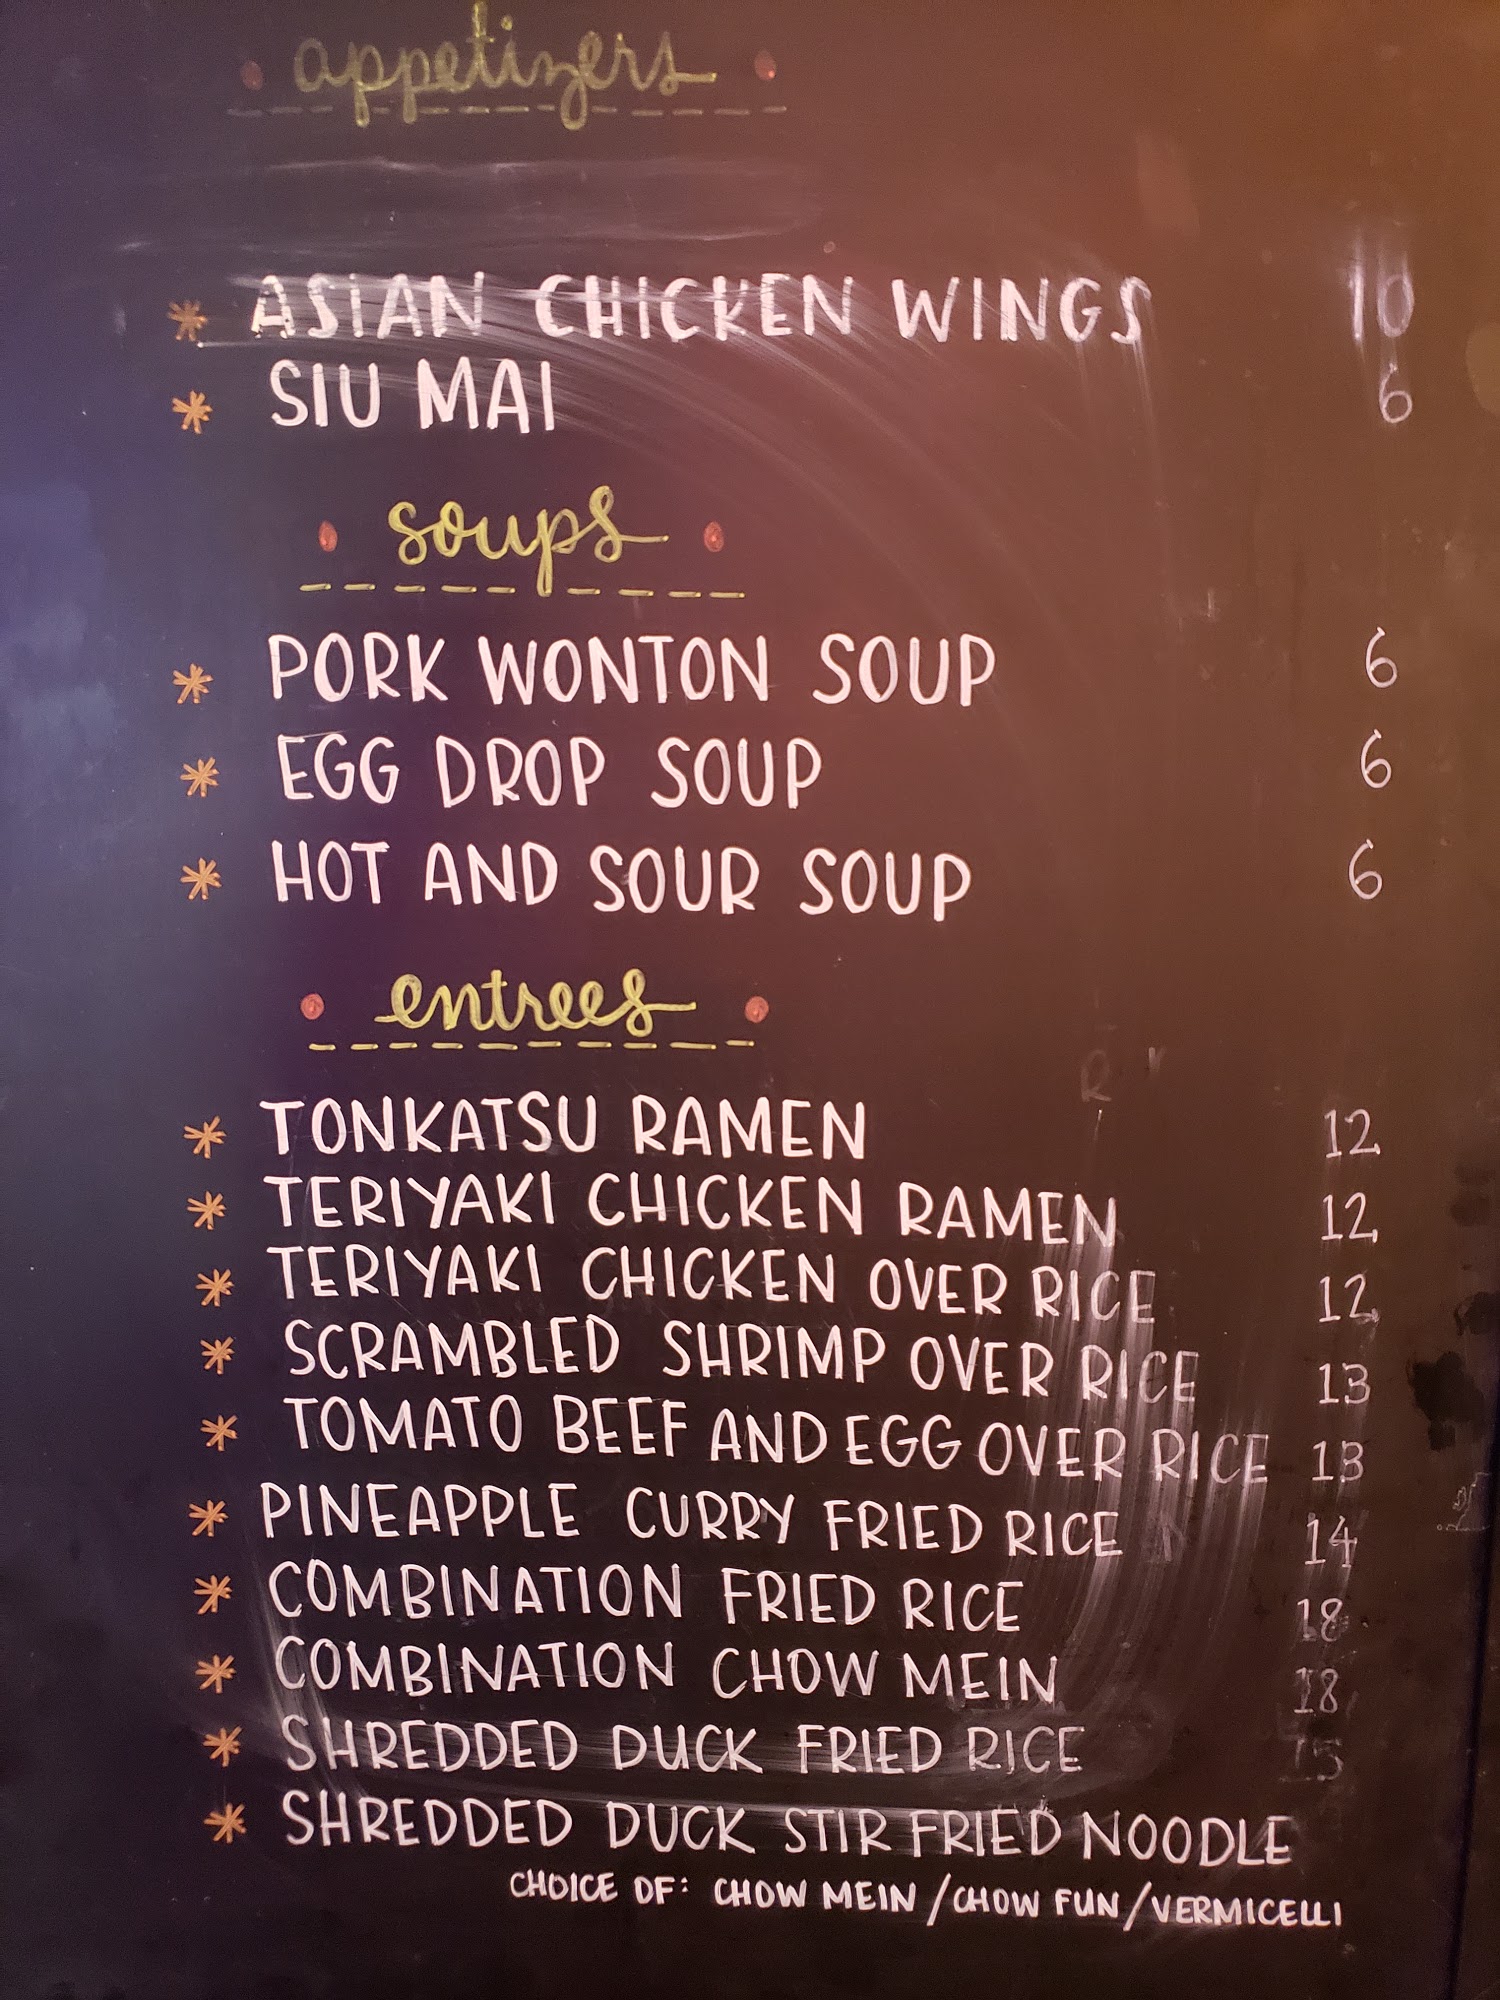 appetizers
ASIAN CHICKEN WINGS 10
SIU MAI 6
soups
PORK WONTON SOUP 6
EGG DROP SOUP 6
HOT AND SOUR SOUP 6
entrees
TONKATSU RAMEN 12
TERIYAKI CHICKEN RAMEN 12
TERIYAKI CHICKEN OVER RICE 12
SCRAMBLED SHRIMP OVER RICE 13
TOMATO BEEF AND EGG OVER RICE 13
PINEAPPLE CURRY FRIED RICE 14
COMBINATION FRIED RICE 18
COMBINATION CHOW MEIN 18
SHREDDED DUCK FRIED RICE 15
SHREDDED DUCK STIR FRIED NOODLE
CHOICE OF: CHOW MEIN / CHOW FUN / VERMICELLI